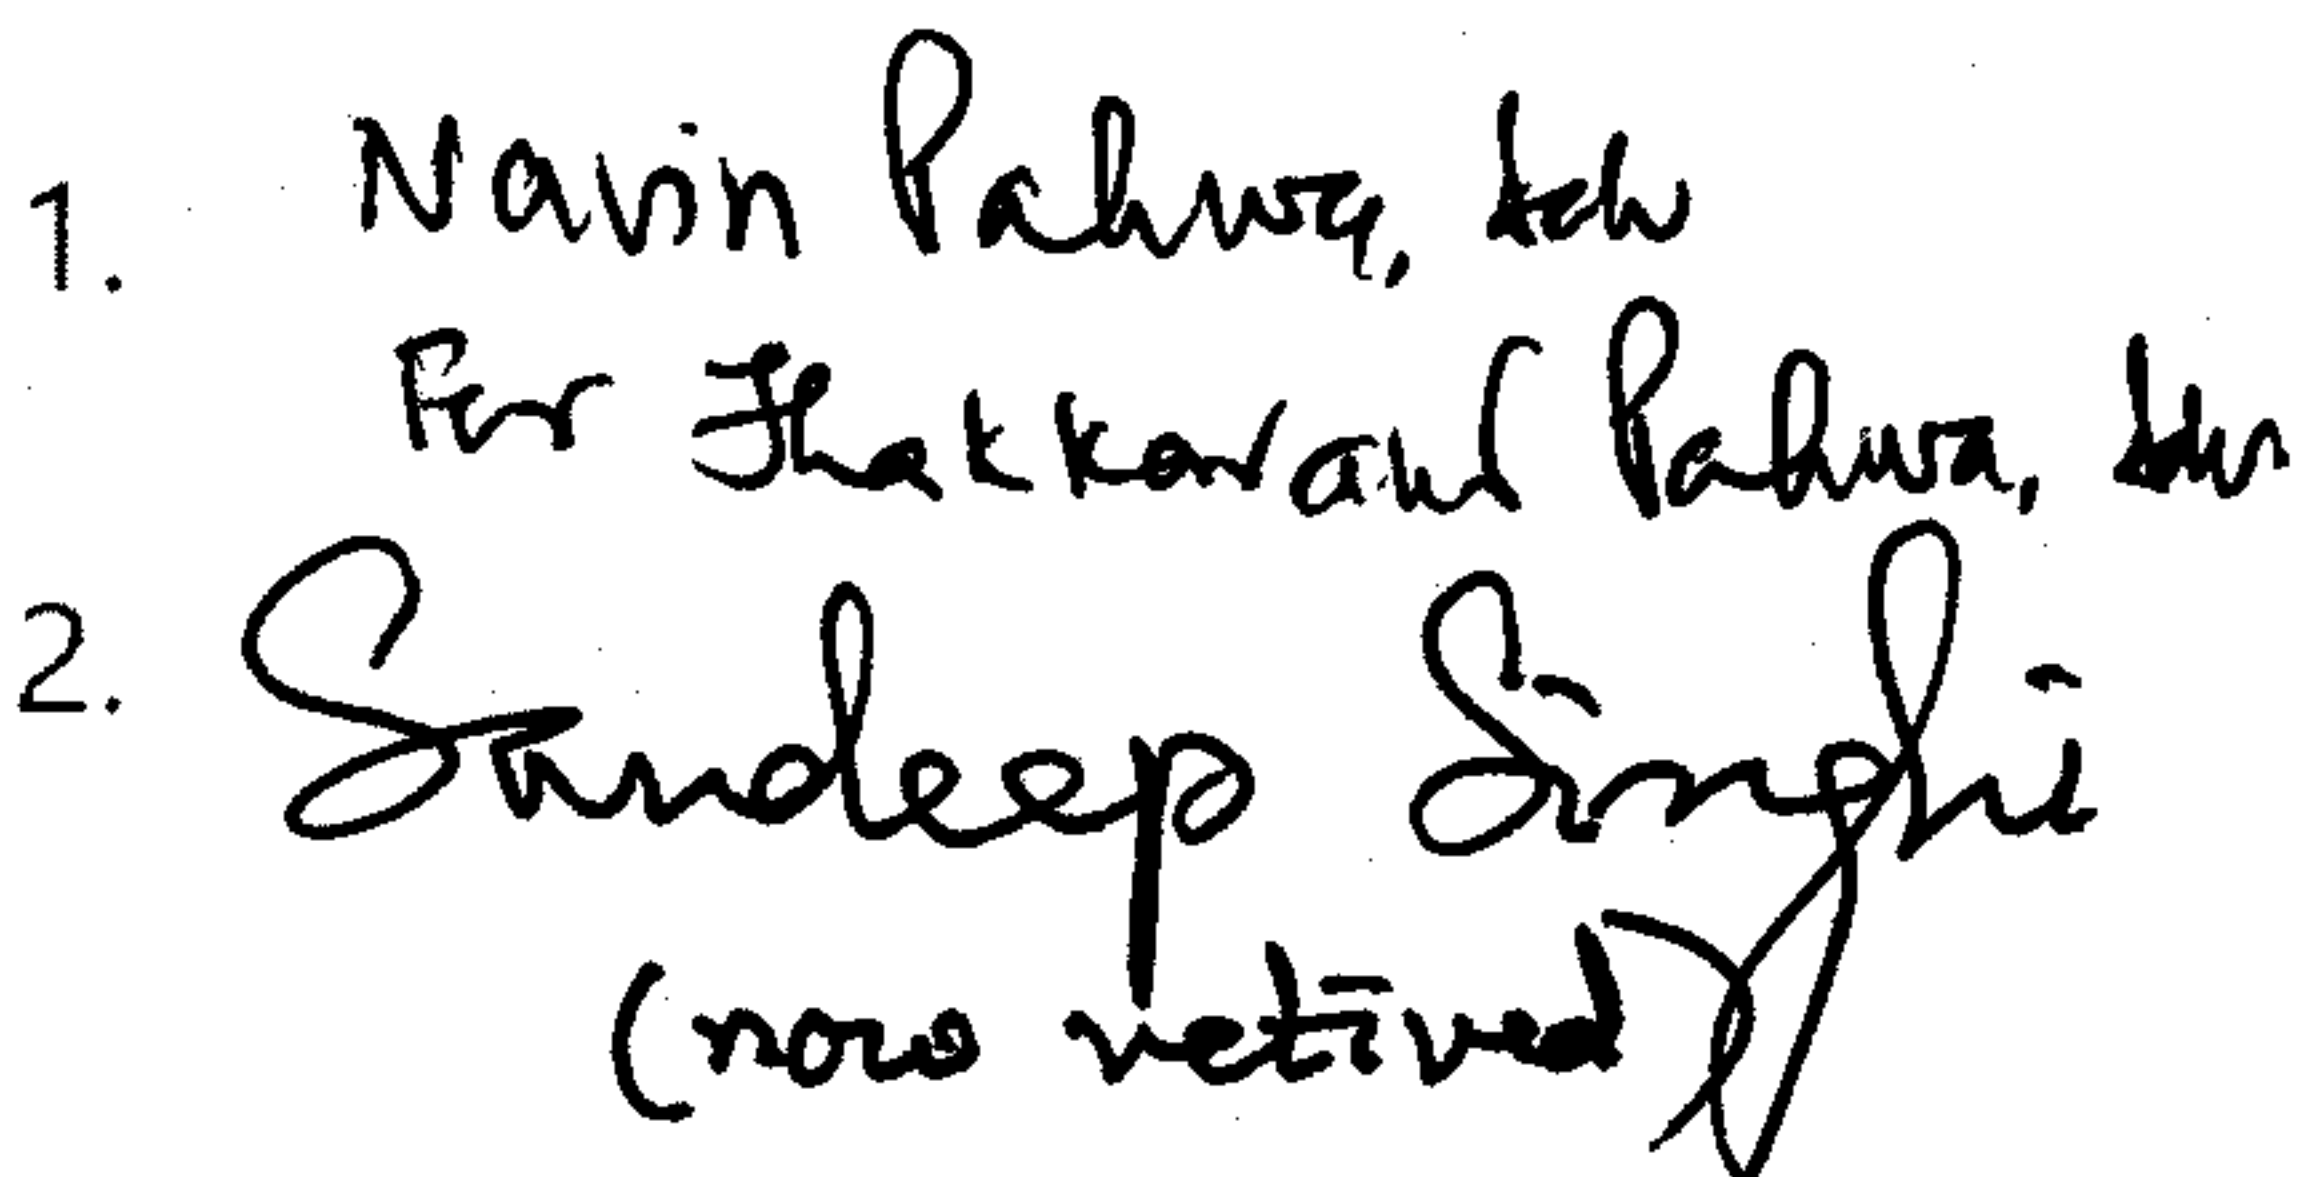 1. Navin Pahwa, Adv
For Thakkar and Pahwa, Adv
2. Sandeep Singhi
(now retired)